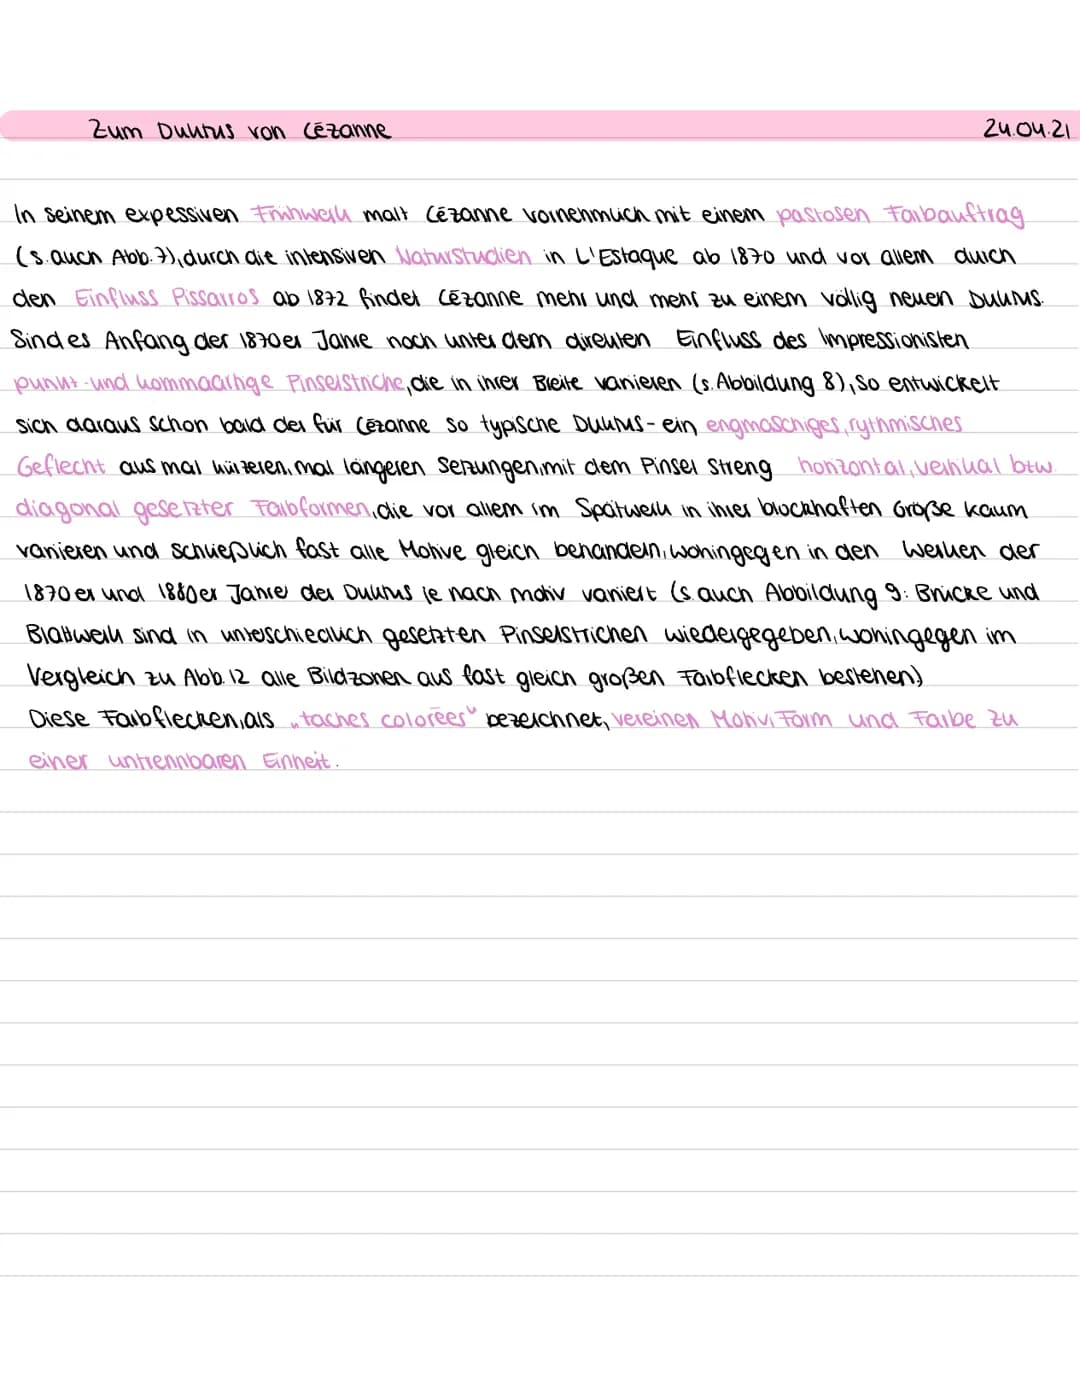 Zum Duktus von Cézanne 24.04.21
In seinem expessiven Frühwerk malt Cézanne vornehmlich mit einem pastosen Farbauftrag
(s. auch Abb. 7), durch die intensiven Naturstudien in L'Estaque ab 1870 und vor allem durch
den Einfluss Pissarros ab 1872 findet Cézanne mehr und mehr zu einem völlig neuen Duktus.
Sind es Anfang der 1870er Jahre noch unter dem direkten Einfluss des Impressionisten
punkt-und kommaartige Pinselstriche, die in ihrer Breite variieren (s. Abbildung 8), so entwickelt
sich daraus schon bald der für Cézanne so typische Duktus - ein engmaschiges, rythmisches
Geflecht aus mal kürzeren, mal längeren Setzungen, mit dem Pinsel streng horizontal, vertikal btw.
diagonal gesetzter Farbformen, die vor allem im Spätwerk in ihrer blockhaften Größe kaum
variieren und schließlich fast alle Motive gleich behandeln, wohingegen in den Werken der
1870er und 1880er Jahre der Duktus je nach motiv variiert (s. auch Abbildung 9: Brücke und
Blattwerk sind in unterschiedlich gesetzten Pinselstrichen wiedergegeben, wohingegen im
Vergleich zu Abb. 12 alle Bildzonen aus fast gleich großen Farbflecken bestehen)
Diese Farbflecken, als „taches colorées" bezeichnet, vereinen Motiv, Form und Farbe zu
einer untrennbaren Einheit.